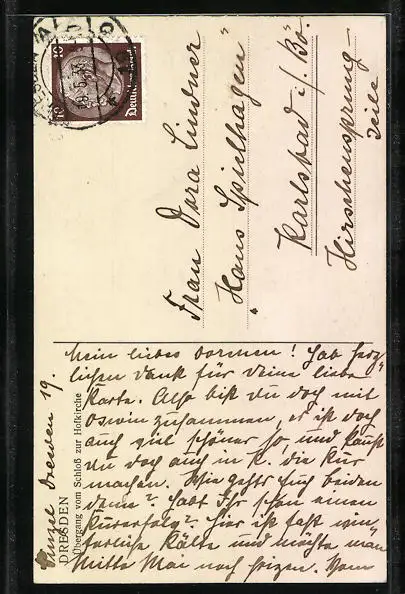 Frau Dora Lindner
"Haus Spielhagen"
Karlsbad i/Bö.
Hirschensprung-
zeile
Deutsches Reich
DRESDEN
Übergang vom Schloß zur Hofkirche
Dresden 19.
Mein liebes Dorchen! Hab herz-
lichen Dank für deine liebe
Karte. Also bist du doch mit
Oswin zusammen, es ist doch
auch viel schöner so, und kannst
du doch auch in K. die Kur
machen. Wie gehts Euch beiden
denn? Habt Ihr schon einen
Kurerfolg? Hier ist fast win-
terliche Kälte und möchte man
Mitte Mai noch heizen. Vom